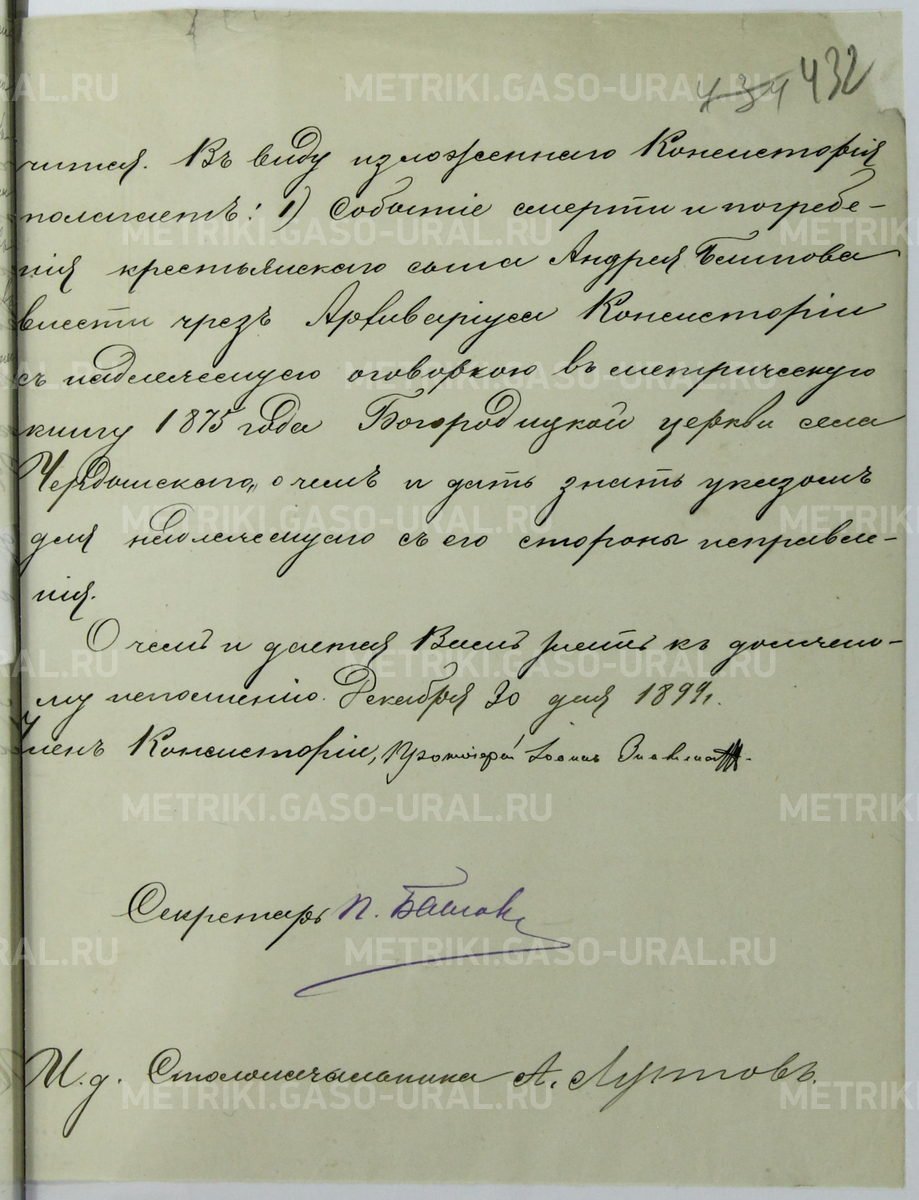 434 432
чится. Въ виду изложеннаго Консисторія
полагаетъ: 1) Событіе смерти и погребе-
нія крестьянскаго сына Андрея
внести чрезъ Архиваріуса Консисторіи
съ надлежащею оговоркою въ метрическую
книгу 1875 года Богородицкой церкви села
о чемъ и дать знать указомъ
для надлежащаго съ его стороны исправле-
нія.
О чемъ и дается Вамъ знать къ должно-
му исполненію. Декабря 30 дня 1899 г.
Членъ Консисторіи, Протоіерей Іоаннъ
Секретарь П.
И. д. Столоначальника А.
METRIKI.GASO-URAL.RU